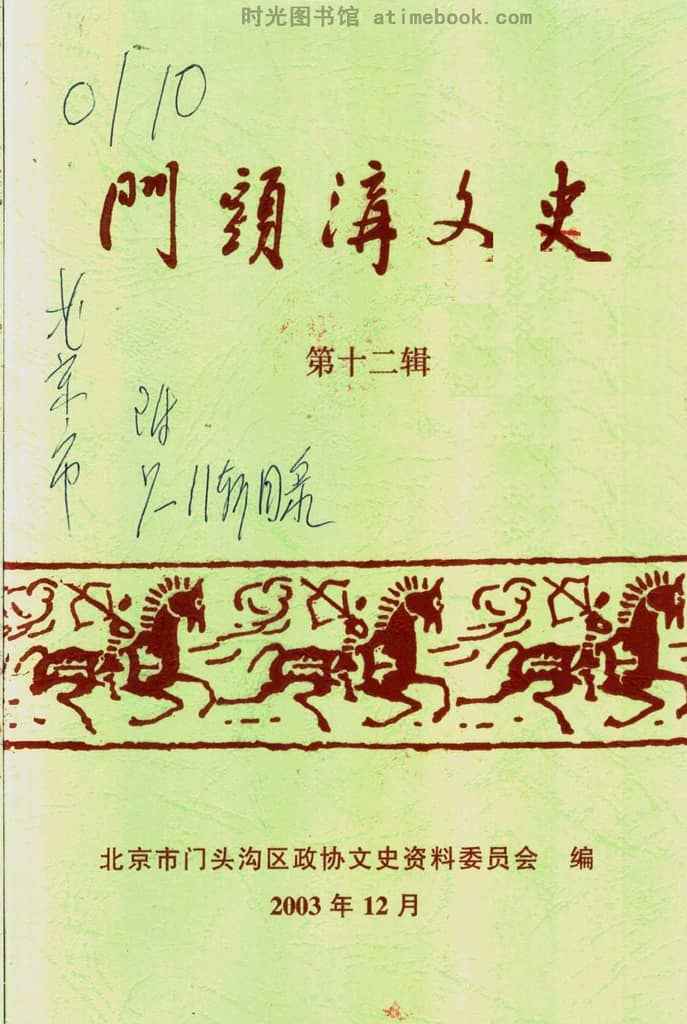 时光图书馆 atimebook.com
0/10
門頭溝文史
第十二辑
北京市
附
1-11辑目录
北京市门头沟区政协文史资料委员会 编
2003 年 12 月